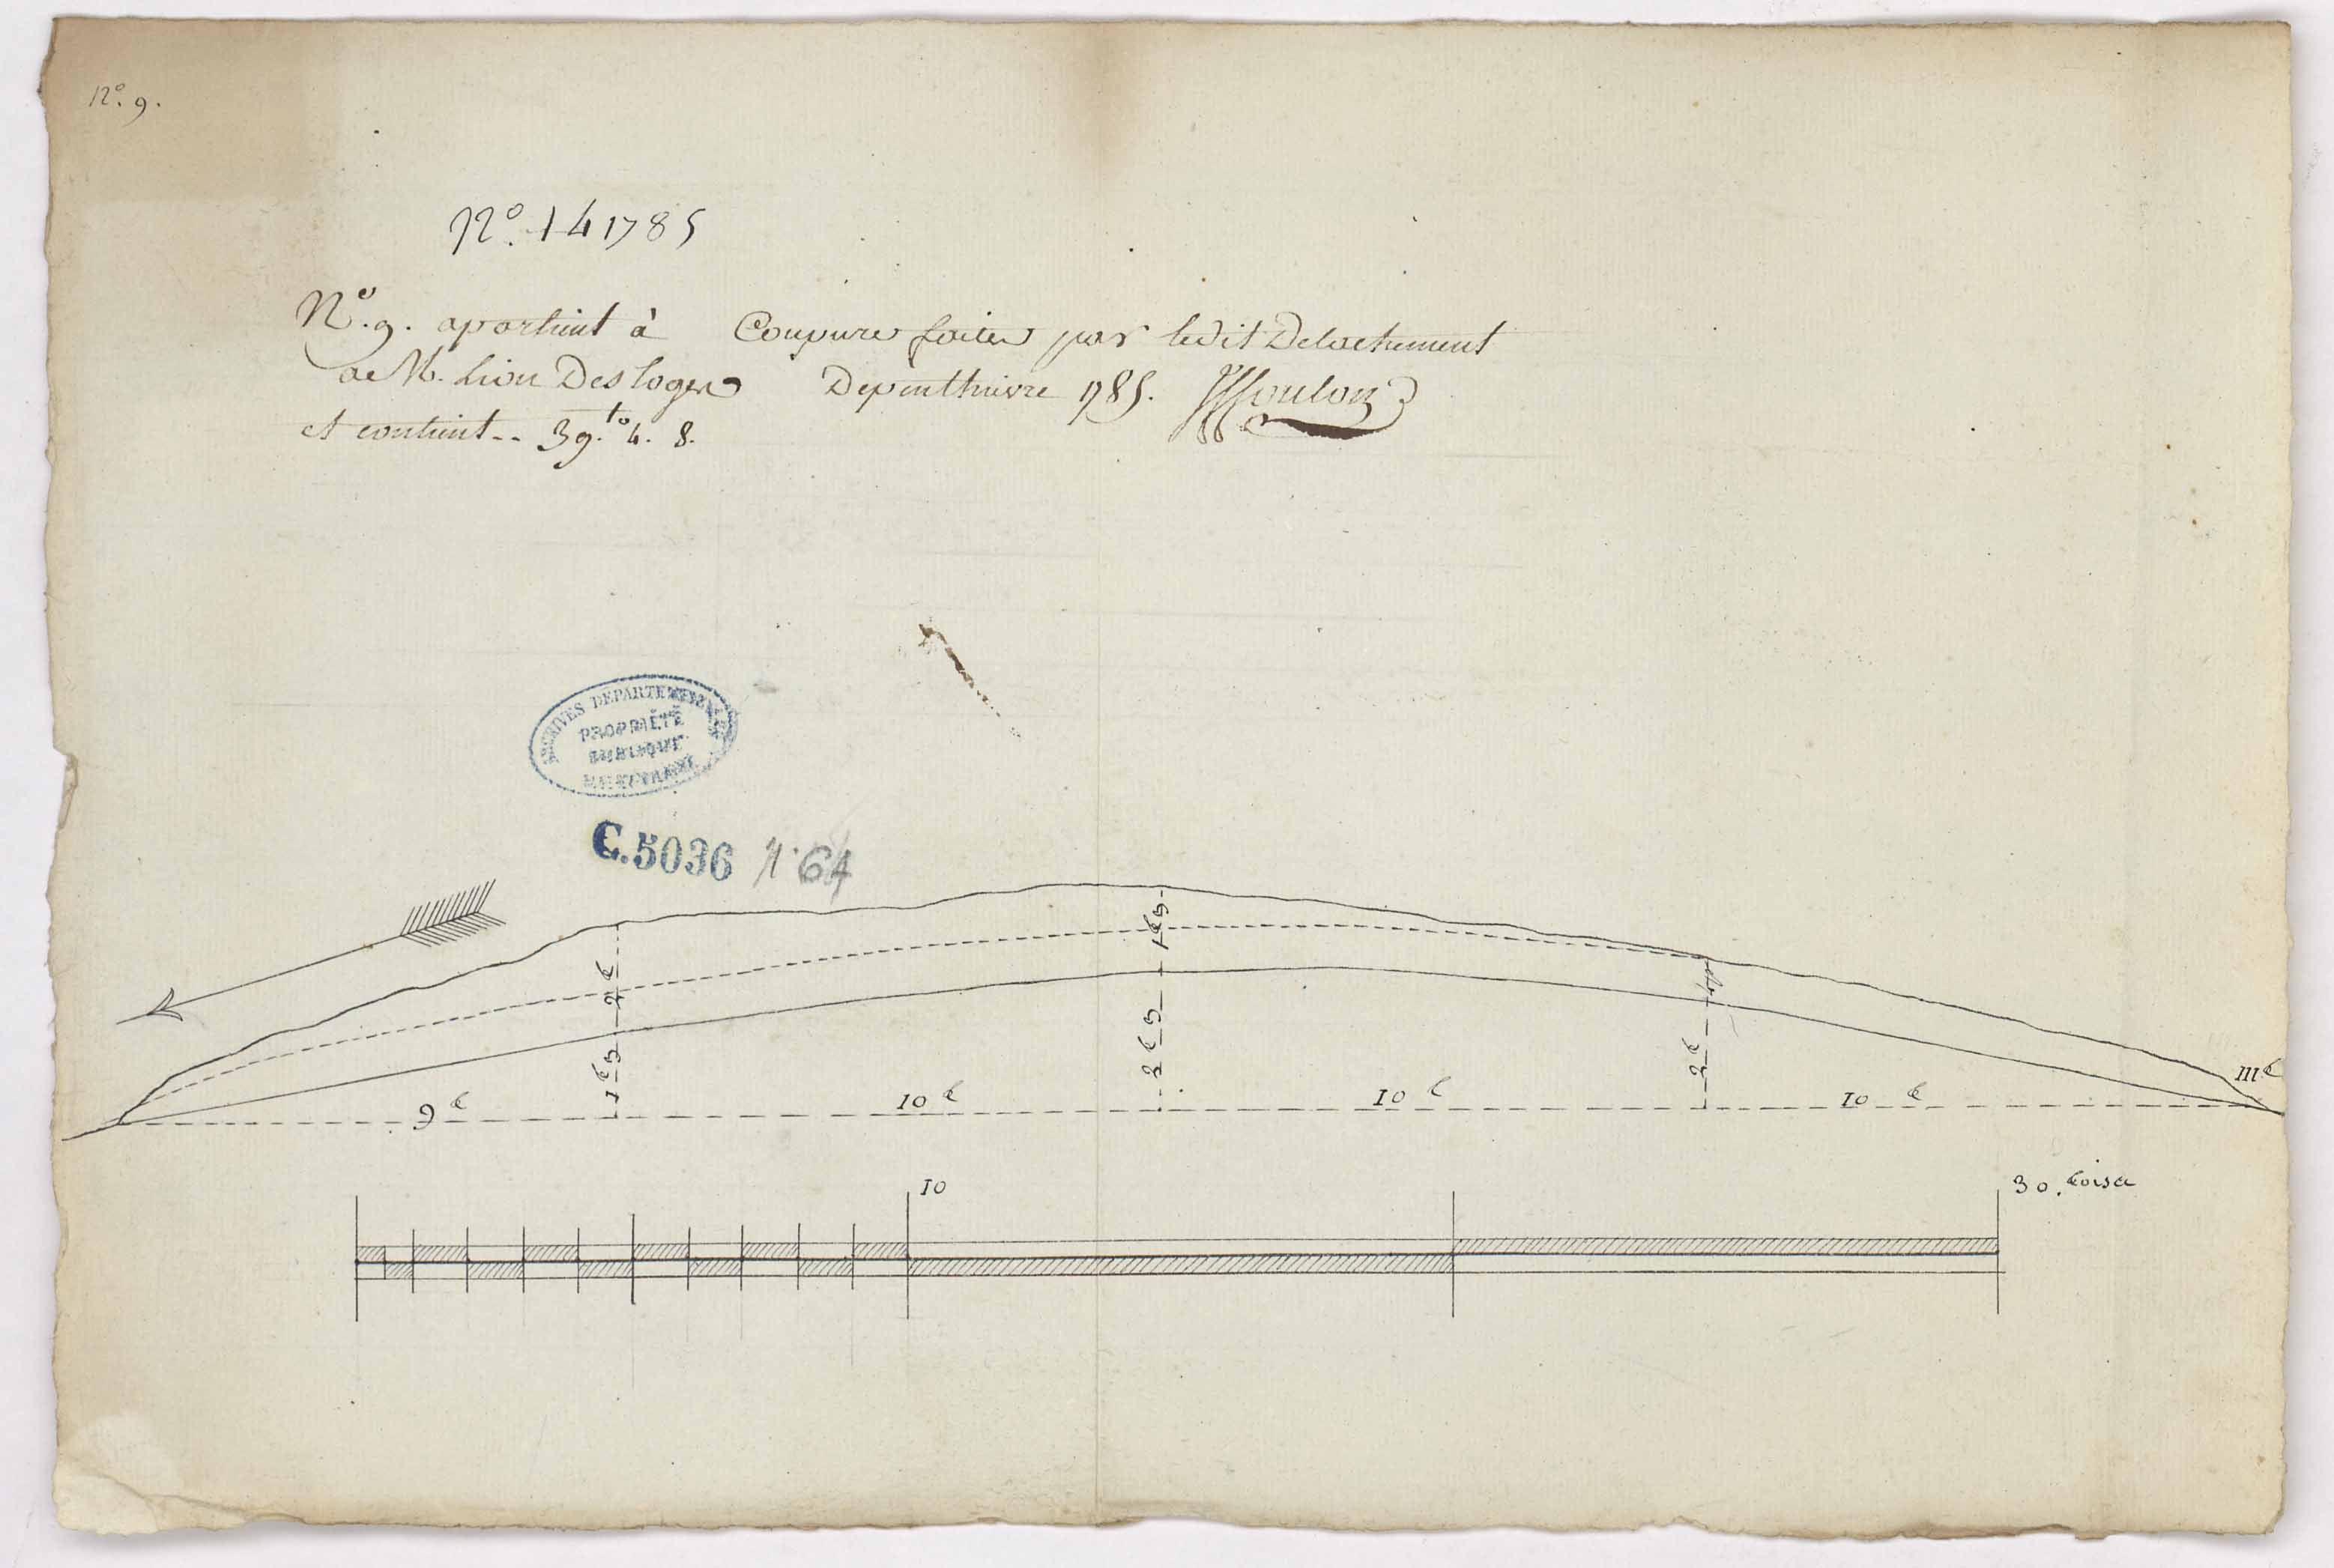 N.º 9.
N.º 14 1785
N.º 9. apartient à
de M. Lion Desloges
et contient -- 39.to 4. 8.
Coupure faite par ledit Detachement
Depenthievre 1785. Moulon
ARCHIVES DEPARTEMENTALES
PROPRIÉTÉ
PUBLIQUE
C.5036 n° 64
2 t
1 t 3
1 t 3
2 t 3
2 t
9 t
10 t
10 t
10 t
10
30. toises